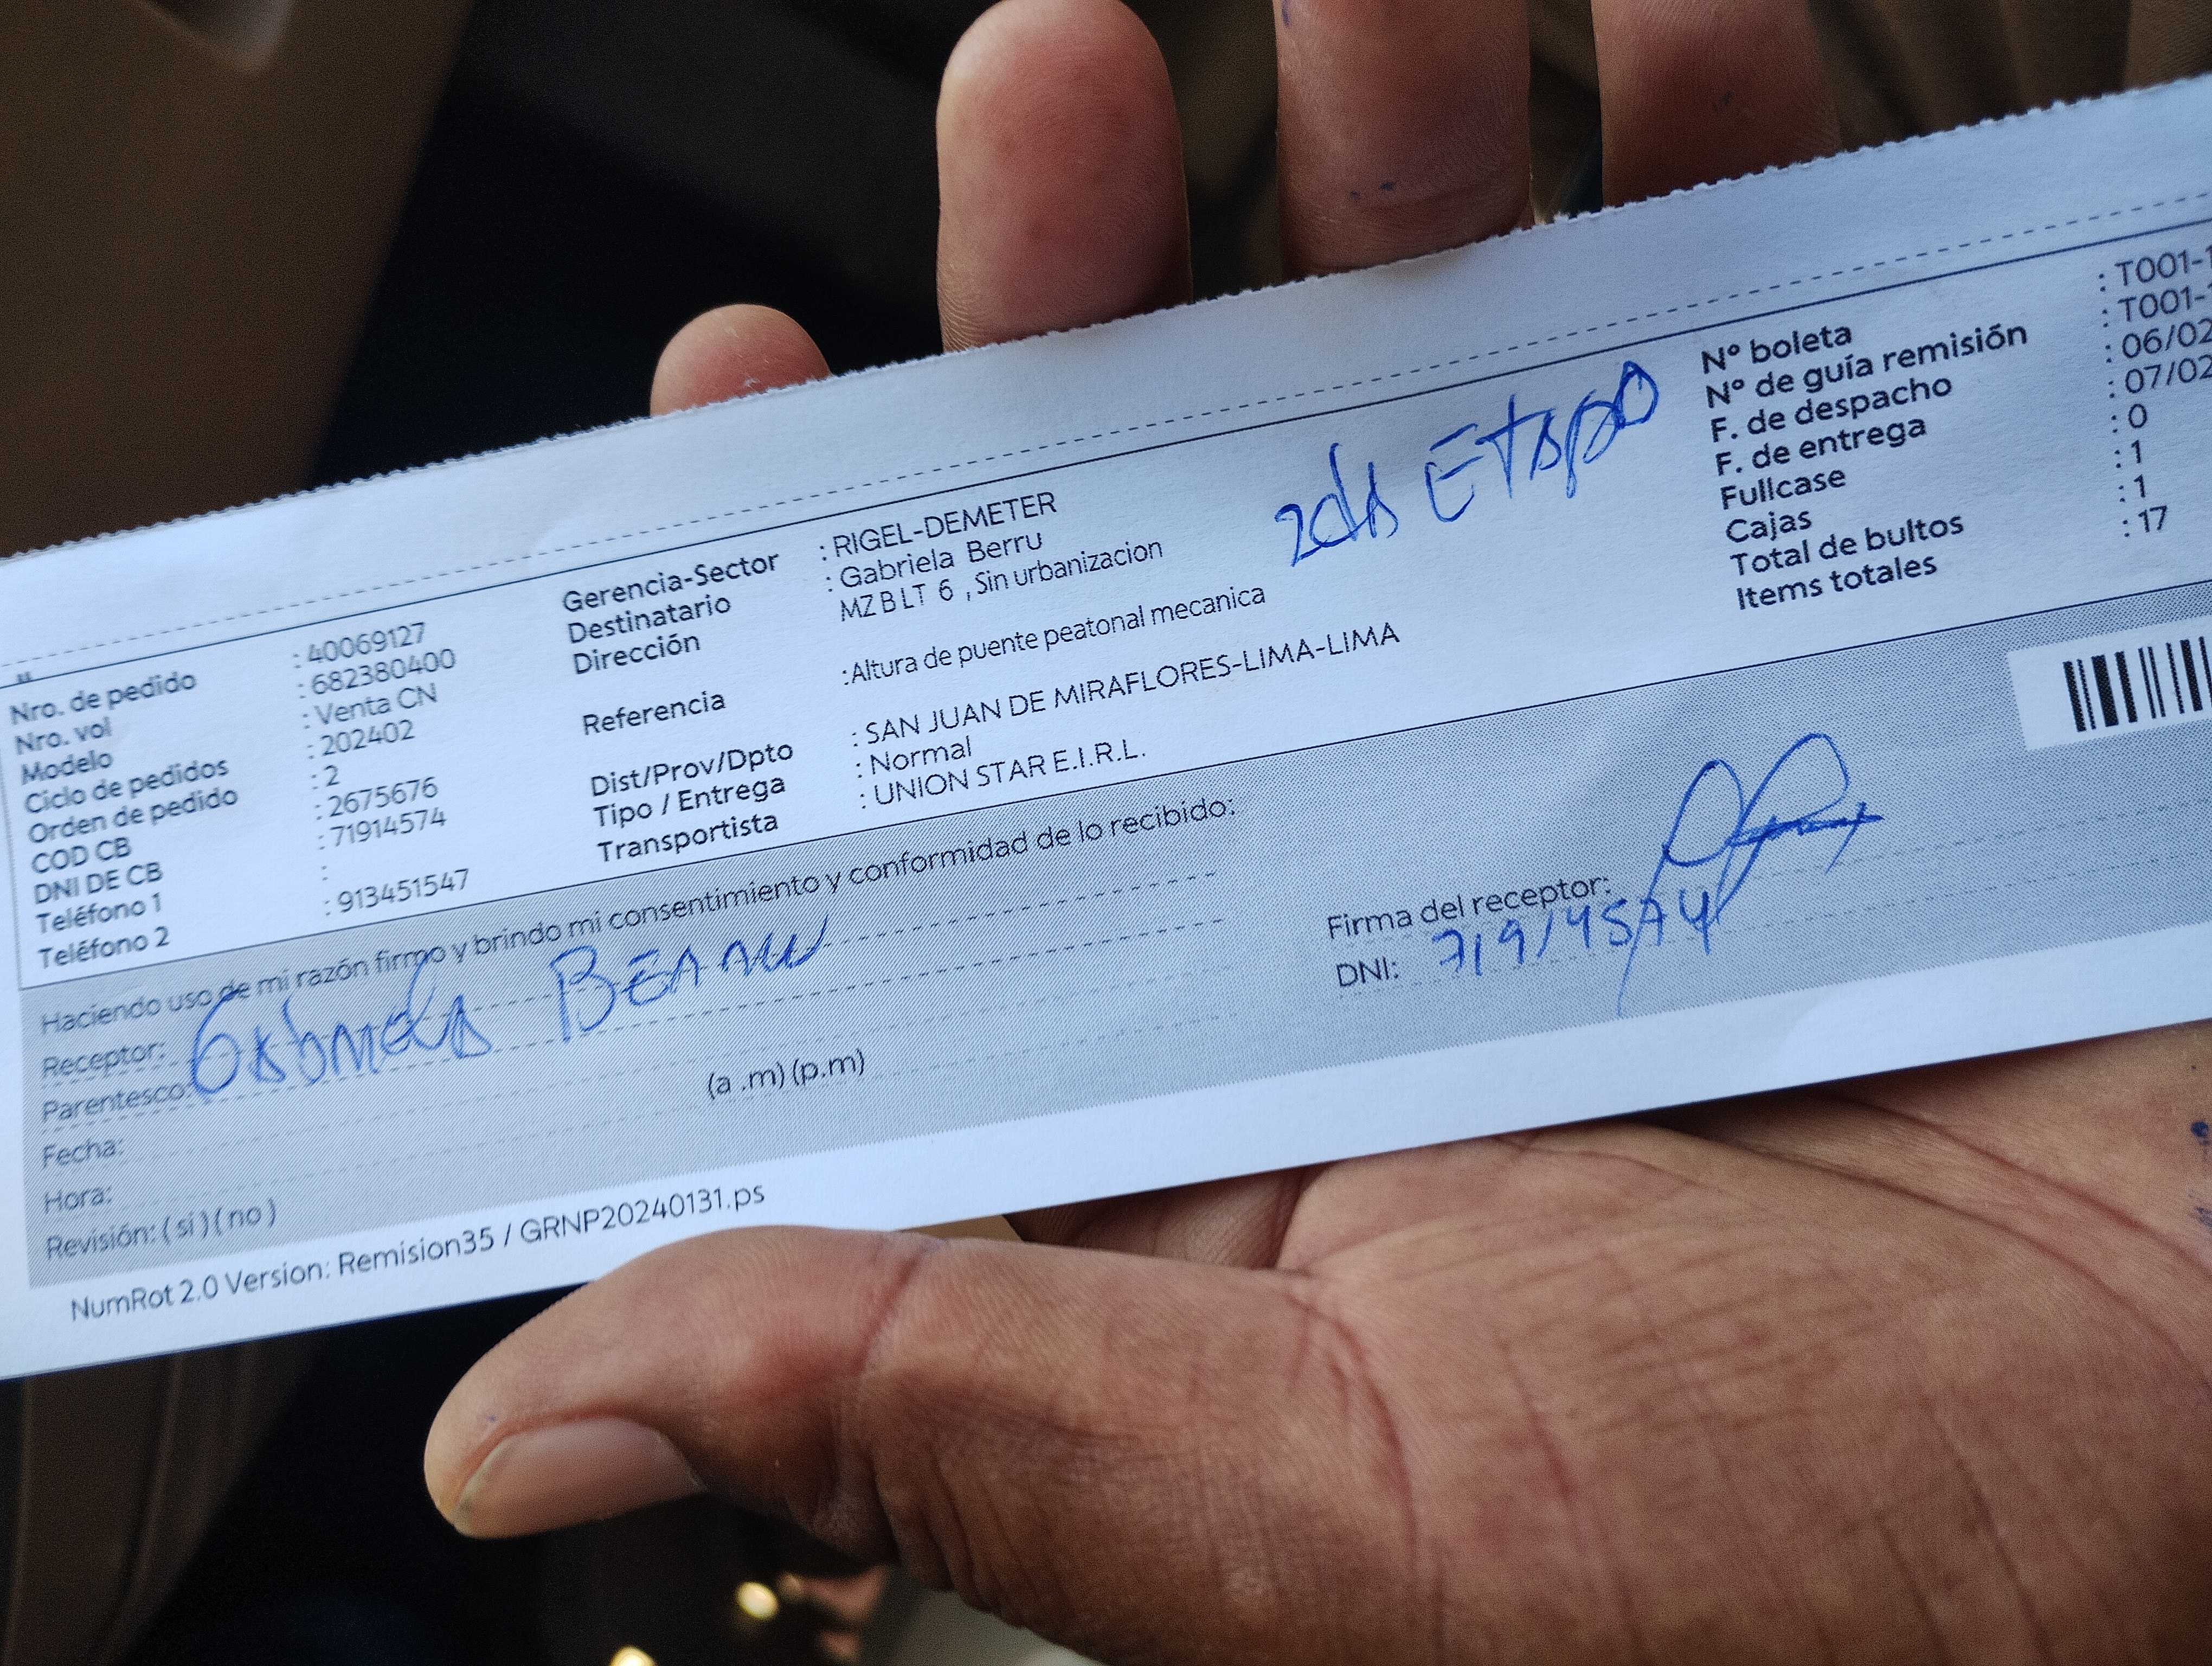 Nro. de pedido : 40069127
Nro. vol : 682380400
Modelo : Venta CN
Ciclo de pedidos : 202402
Orden de pedido : 2
COD CB : 2675676
DNI DE CB : 71914574
Teléfono 1 :
Teléfono 2 : 913451547
Gerencia-Sector : RIGEL-DEMETER
Destinatario : Gabriela Berru
Dirección MZ B LT 6 , Sin urbanizacion
Referencia :Altura de puente peatonal mecanica
Dist/Prov/Dpto : SAN JUAN DE MIRAFLORES-LIMA-LIMA
Tipo / Entrega : Normal
Transportista : UNION STAR E.I.R.L.
2da Etapa
N° boleta : T001-1
N° de guía remisión : T001-
F. de despacho : 06/02
F. de entrega : 07/02
Fullcase : 0
Cajas : 1
Total de bultos : 1
Items totales : 17
Haciendo uso de mi razón firmo y brindo mi consentimiento y conformidad de lo recibido:
Receptor: Gabriela Berru
Parentesco:
Fecha:
Hora: (a .m) (p.m)
Revisión: ( si ) ( no )
Firma del receptor:
DNI: 71914574
NumRot 2.0 Version: Remision35 / GRNP20240131.ps